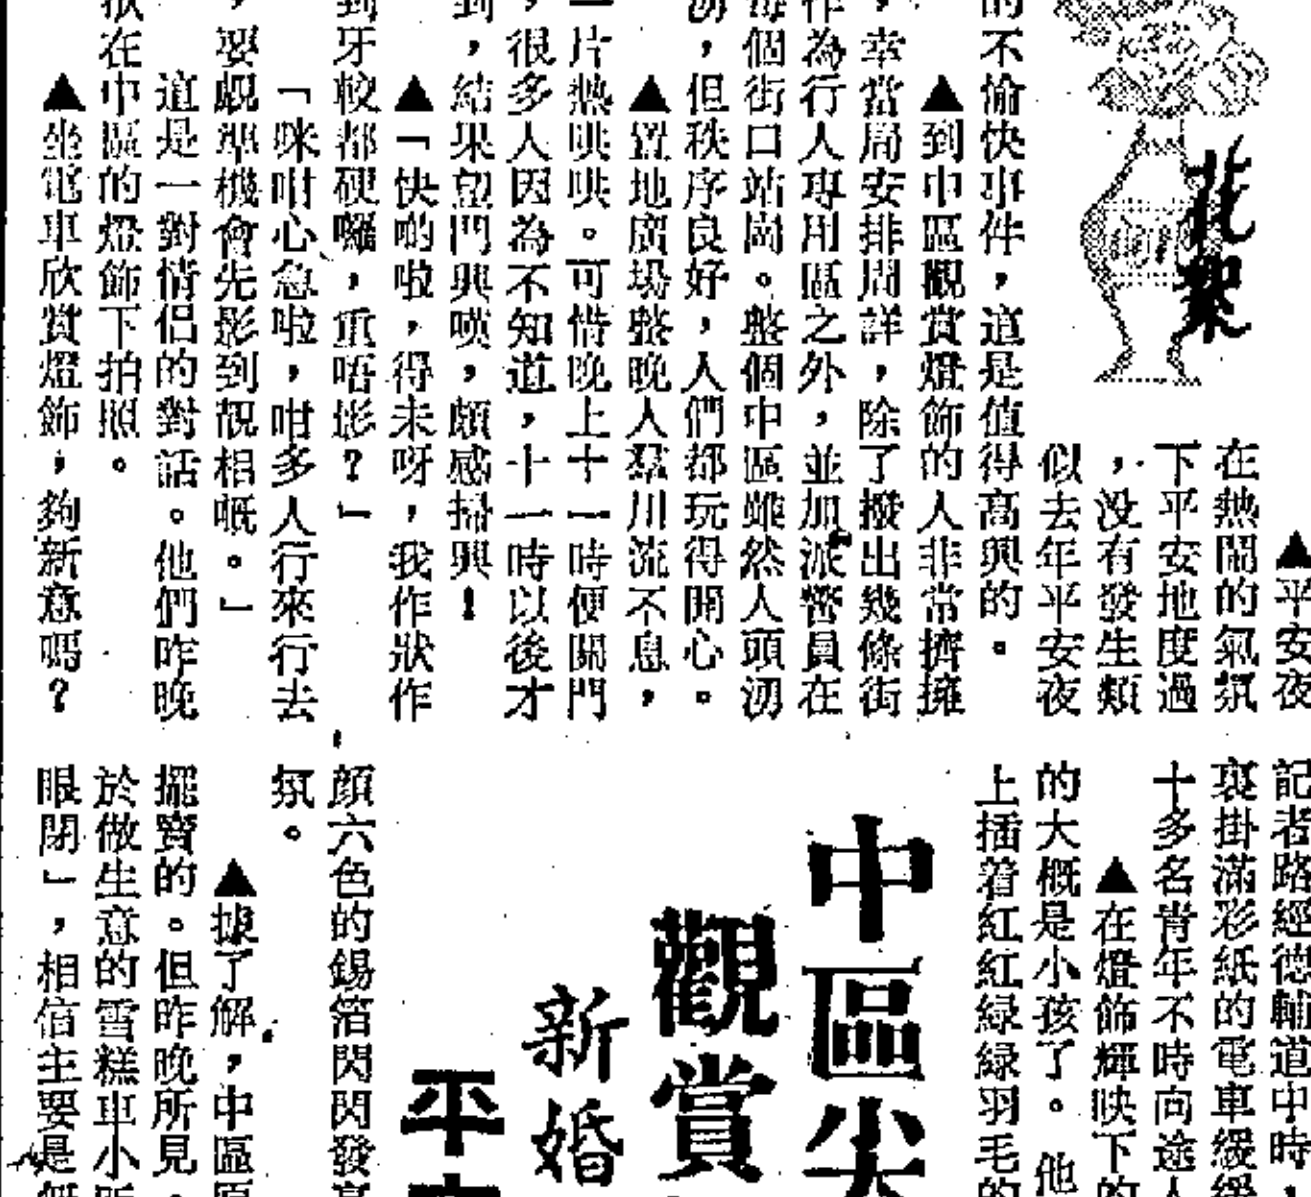 花絮
▲平安夜
在熱鬧的氣氛
下平安地度過
，没有發生類
似去年平安夜
的不愉快事件，這是值得高興的。
▲到中區觀賞燈飾的人非常擠擁
，幸當局安排周詳，除了撥出幾條街
作為行人專用區之外，並加派警員在
每個街口站崗。整個中區雖然人頭湧
湧，但秩序良好，人們都玩得開心。
▲置地廣場整晚人羣川流不息，
一片熱哄哄。可惜晚上十一時便關門
，很多人因為不知道，十一時以後才
到，結果望門興嘆，頗感掃興！
▲「快啲啦，得未呀，我作狀作
到牙較都硬囉，重唔影？」
「咪咁心急啦，咁多人行來行去
，要覷準機會先影到靚相嘅。」
這是一對情侣的對話。他們昨晚
狀在中區的燈飾下拍照。
▲坐電車欣賞燈飾，夠新意嗎？
記者路經德輔道中時，
裏掛滿彩紙的電車緩緩
十多名青年不時向途人
▲在燈飾輝映下的
的大概是小孩了。他
上插着紅紅緑緑羽毛的
中區尖
觀賞
新婚
平
顔六色的錫箔閃閃發
氛。
▲據了解，中區原
擺賣的。但昨晚所見，
於做生意的雪糕車小販
眼閉」，相信主要是